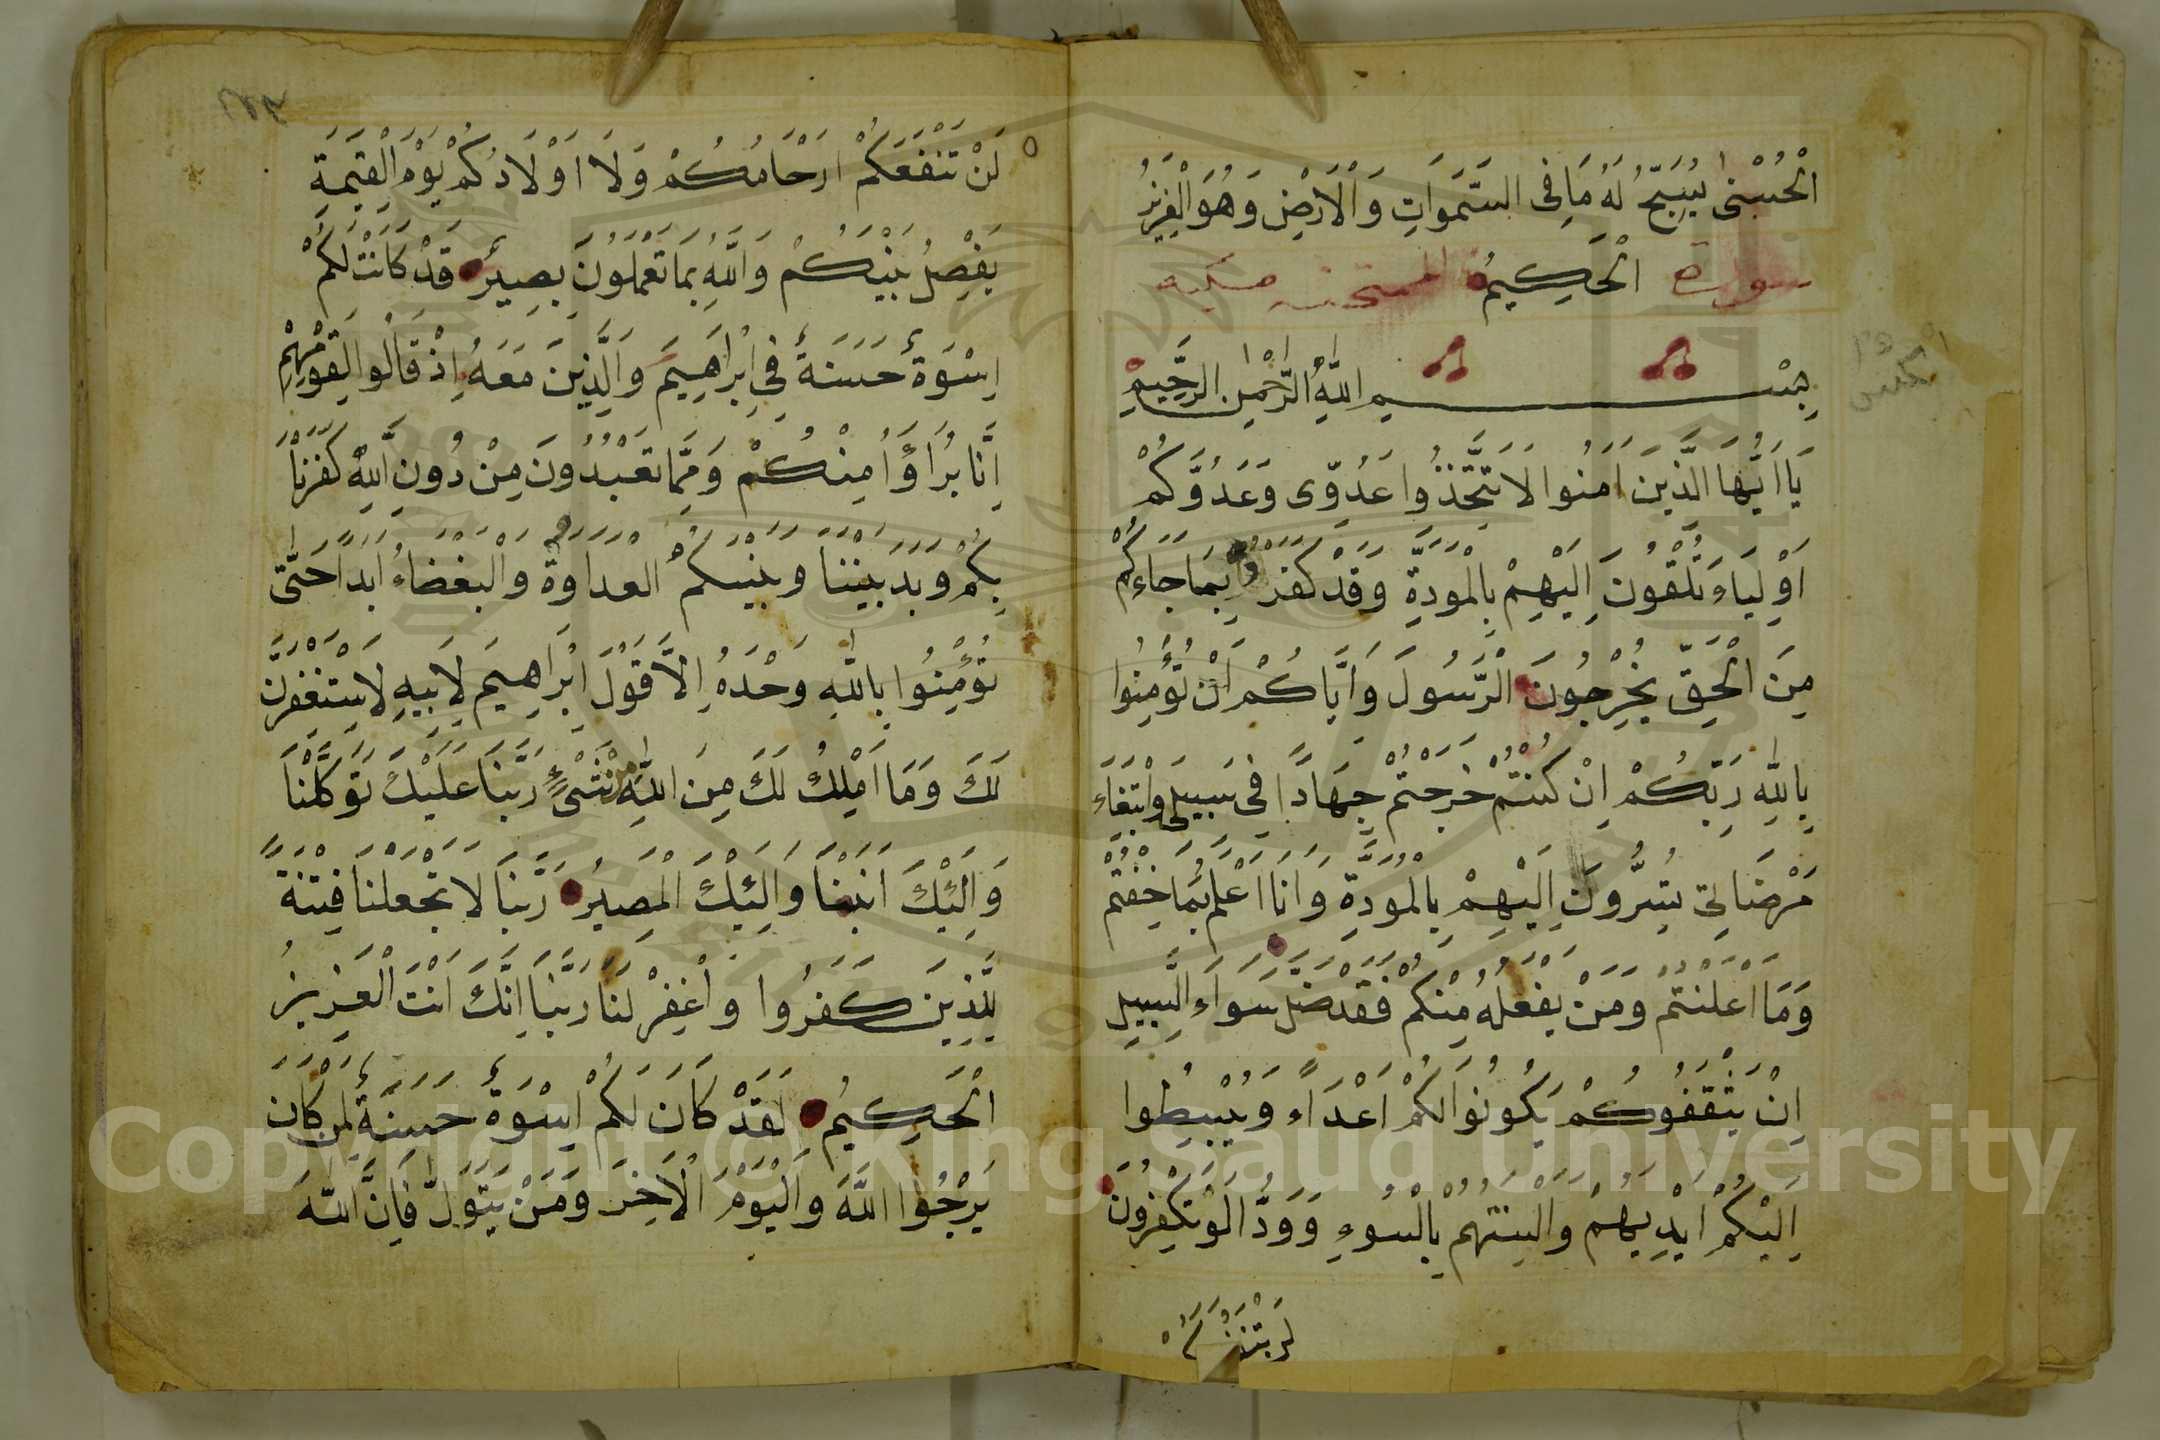 الْحُسْنىٰ يُسَبِّحُ لَهُ مَا فِى السَّمَوَاتِ وَالْاَرْضِ وَهُوَ الْعَزِيزُ
سورة الْحَكِيمُ الممتحنه مكيه
بِسْمِ اللّٰهِ الرَّحْمٰنِ الرَّحِيمِ
يَا اَيُّهَا الَّذِينَ اٰمَنُوا لَا تَتَّخِذُوا عَدُوِّى وَعَدُوَّكُمْ
اَوْلِيَاءَ تُلْقُونَ اِلَيْهِمْ بِالْمَوَدَّةِ وَقَدْ كَفَرُوا بِمَا جَاءَكُمْ
مِنَ الْحَقِّ يُخْرِجُونَ الْرَّسُولَ وَاَيَّاكُمْ اَنْ تُؤْمِنُوا
بِاللّٰهِ رَبِّكُمْ اِنْ كُنْتُمْ خَرَجْتُمْ جِهَادًا فِى سَبِيلِى وَابْتِغَاءَ
مَرْضَاتِى تُسِرُّونَ اِلَيْهِمْ بِالْمَوَدَّةِ وَاَنَا اَعْلَمُ بِمَا خْفَيْتُمْ
وَمَا اَعْلَنْتُمْ وَمَنْ يَفْعَلْهُ مِنْكُمْ فَقَدْ ضَلَّ سَوَاءَ السَّبِيلِ
اِنْ يَثْقَفُوكُمْ يَكُونُوا لَكُمْ اَعْدَاءً وَيَبْسُطُوا
اِلَيْكُمْ اَيْدِيَهُمْ وَاَلْسِنَتَهُمْ بِالْسُوءِ وَوَدُّوا لَوْ تَكْفُرُونَ
لَنْ تَنْفَعَكُمْ
لَنْ تَنْفَعَكُمْ اَرْحَامُكُمْ وَلَا اَوْلَادُكُمْ يَوْمَ الْقِيَمَةِ
يَفْصِلُ بَيْنَكُمْ وَاللّٰهُ بِمَا تَعْمَلُونَ بَصِيرٌ قَدْ كَانَتْ لَكُمْ
اِسْوَةٌ حَسَنَةٌ فِى اِبْرَاهِيمَ وَالَّذِينَ مَعَهُ اِذْ قَالُوا لِقَوْمِهِمْ
اِنَّا بُرَاؤُا مِنْكُمْ وَمِمَّا تَعْبُدُونَ مِنْ دُونِ اللّٰهِ كَفَرْنَا
بِكُمْ وَبَدَ بَيْنَنَا وَبَيْنَكُمْ الْعَدَاوَةُ وَالْبَغْضَاءُ اَبَدًا حَتّٰى
تُؤْمِنُوا بِاللّٰهِ وَحْدَهُ اِلَّا قَوْلَ اِبْرَاهِيمَ لِاَبِيهِ لَاَسْتَغْفِرَنَّ
لَكَ وَمَا اَمْلِكُ لَكَ مِنَ اللّٰهِ مِنْ شَىْءٍ رَبَّنَا عَلَيْكَ تَوَكَّلْنَا
وَاِلَيْكَ اَنَبْنَا وَاِلَيْكَ الْمَصِيرُ رَبَّنَا لَا تَجْعَلْنَا فِتْنَةً
لِلَّذِينَ كَفَرُوا وَاغْفِرْ لَنَا رَبَّنَا اِنَّكَ اَنْتَ الْعَزِيزُ
الْحَكِيمُ لَقَدْ كَانَ لَكُمْ اِسْوَةٌ حَسَنَةٌ لِمَنْ كَانَ
يَرْجُوا اللّٰهَ وَالْيَوْمَ الْاٰخِرَ وَمَنْ يَتَوَلَّ فَاِنَّ اللّٰهَ
Copyright © King Saud University